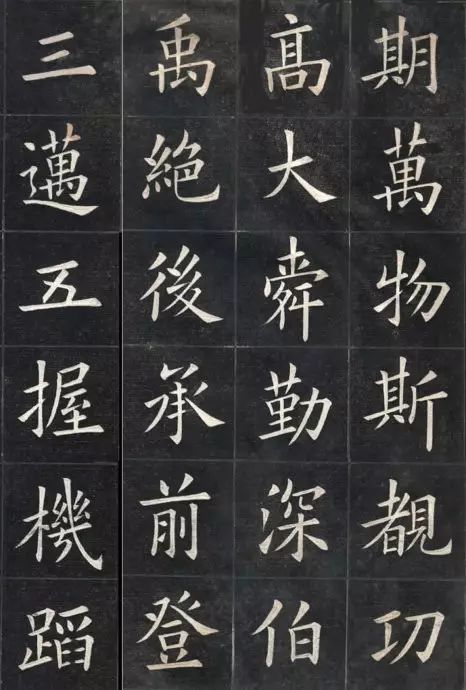 期萬物斯覩功
高大舜勤深伯
禹絕後承前登
三邁五握機蹈